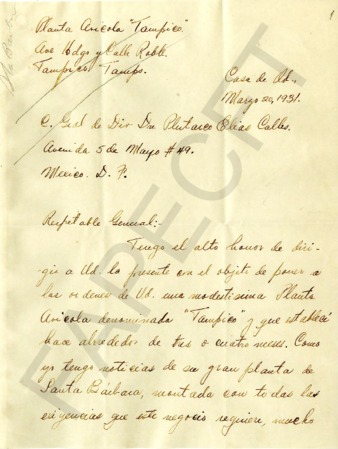 1
Planta Avícola "Tampico".
Ave Hdgo y Calle Roble.
Tampico Tamps.
Casa de Ud.,
Marzo 20, 1931.
C. Gral de Div Dn Plutarco Elías Calles.
Avenida 5 de Mayo # 49.
Mexico. D. F.
Respetable General:-
Tengo el alto honor de diri-
gir a Ud. la presente con el objeto de poner a
las ordenes de Ud. una modestisima Planta
Avícola denominada "Tampico" y que establecí
hace alrededor de tres o cuatro meses. Como
yo tengo noticias de su gran planta de
Santa Bárbara, montada con todas las
exigencias que este negocio requiere, mucho
FAPECFT